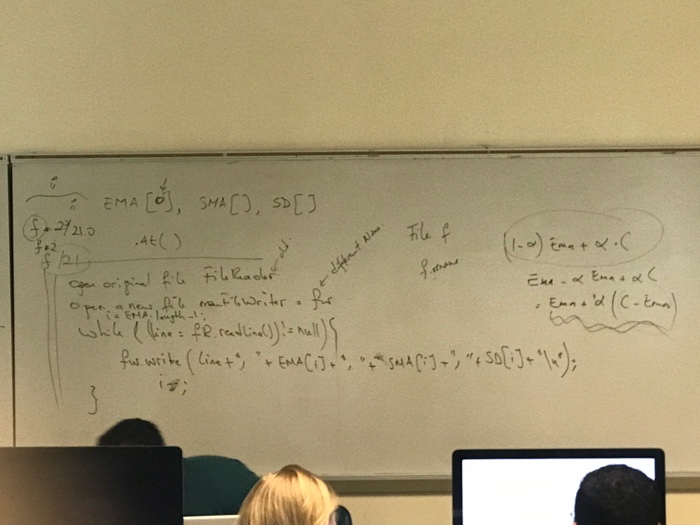 EMA[0], SMA[], SD[]
.At()
f * 2/21.0
f*2
f/21
open original file FileReader old
open a new file FileWriter = fw different Name
i = EMA.length-1;
while ((line = fR.readLine()) != null) {
fw.write(line+", "+EMA[i]+", "+SMA[i]+", "+SD[i]+"\n");
}
File f
f.rename
(1-α) Ema + α · C
Ema - α Ema + α C
= Ema + α (C - Ema)